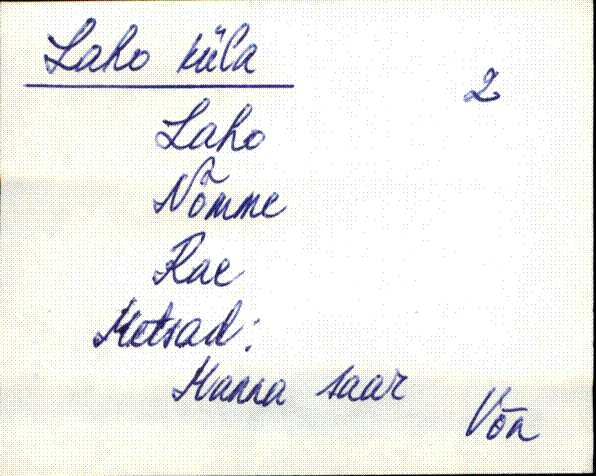 Laho küla
2
Laho
Nõmme
Rae
Metsad:
Manna saar
Võn